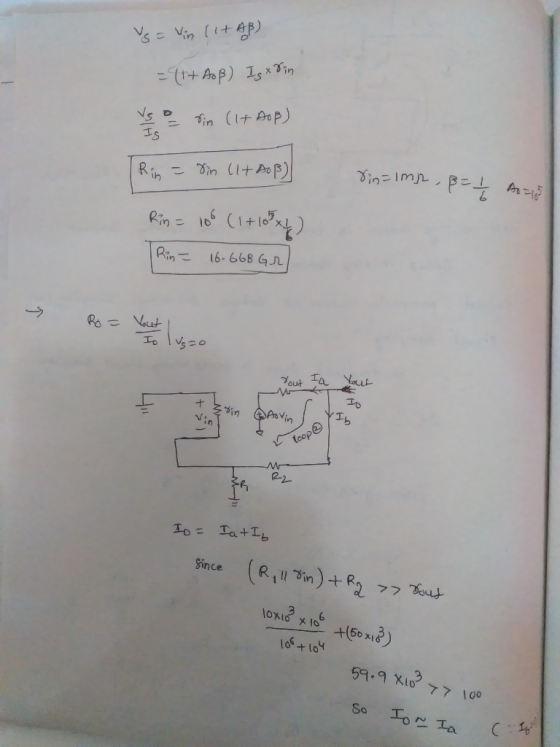 Vs = Vin (1 + A0β)
= (1 + A0β) Is × rin
Vs/Is = rin (1 + A0β)
Rin = rin (1 + A0β)
rin = 1mΩ, β = 1/6 A0 = 10^5
Rin = 10^6 (1 + 10^5 × 1/6)
Rin = 16.668 GΩ
→ R0 = Vout/I0 | Vs = 0
rout Ia Vout
I0
+ Vin − rin A0Vin Ib
loop ②
R2
R1
I0 = Ia + Ib
Since (R1 || rin) + R2 >> rout
10×10^3 × 10^6 / 10^6 + 10^4 + (50×10^3)
59.9 × 10^3 >> 100
So I0 ≃ Ia (∵